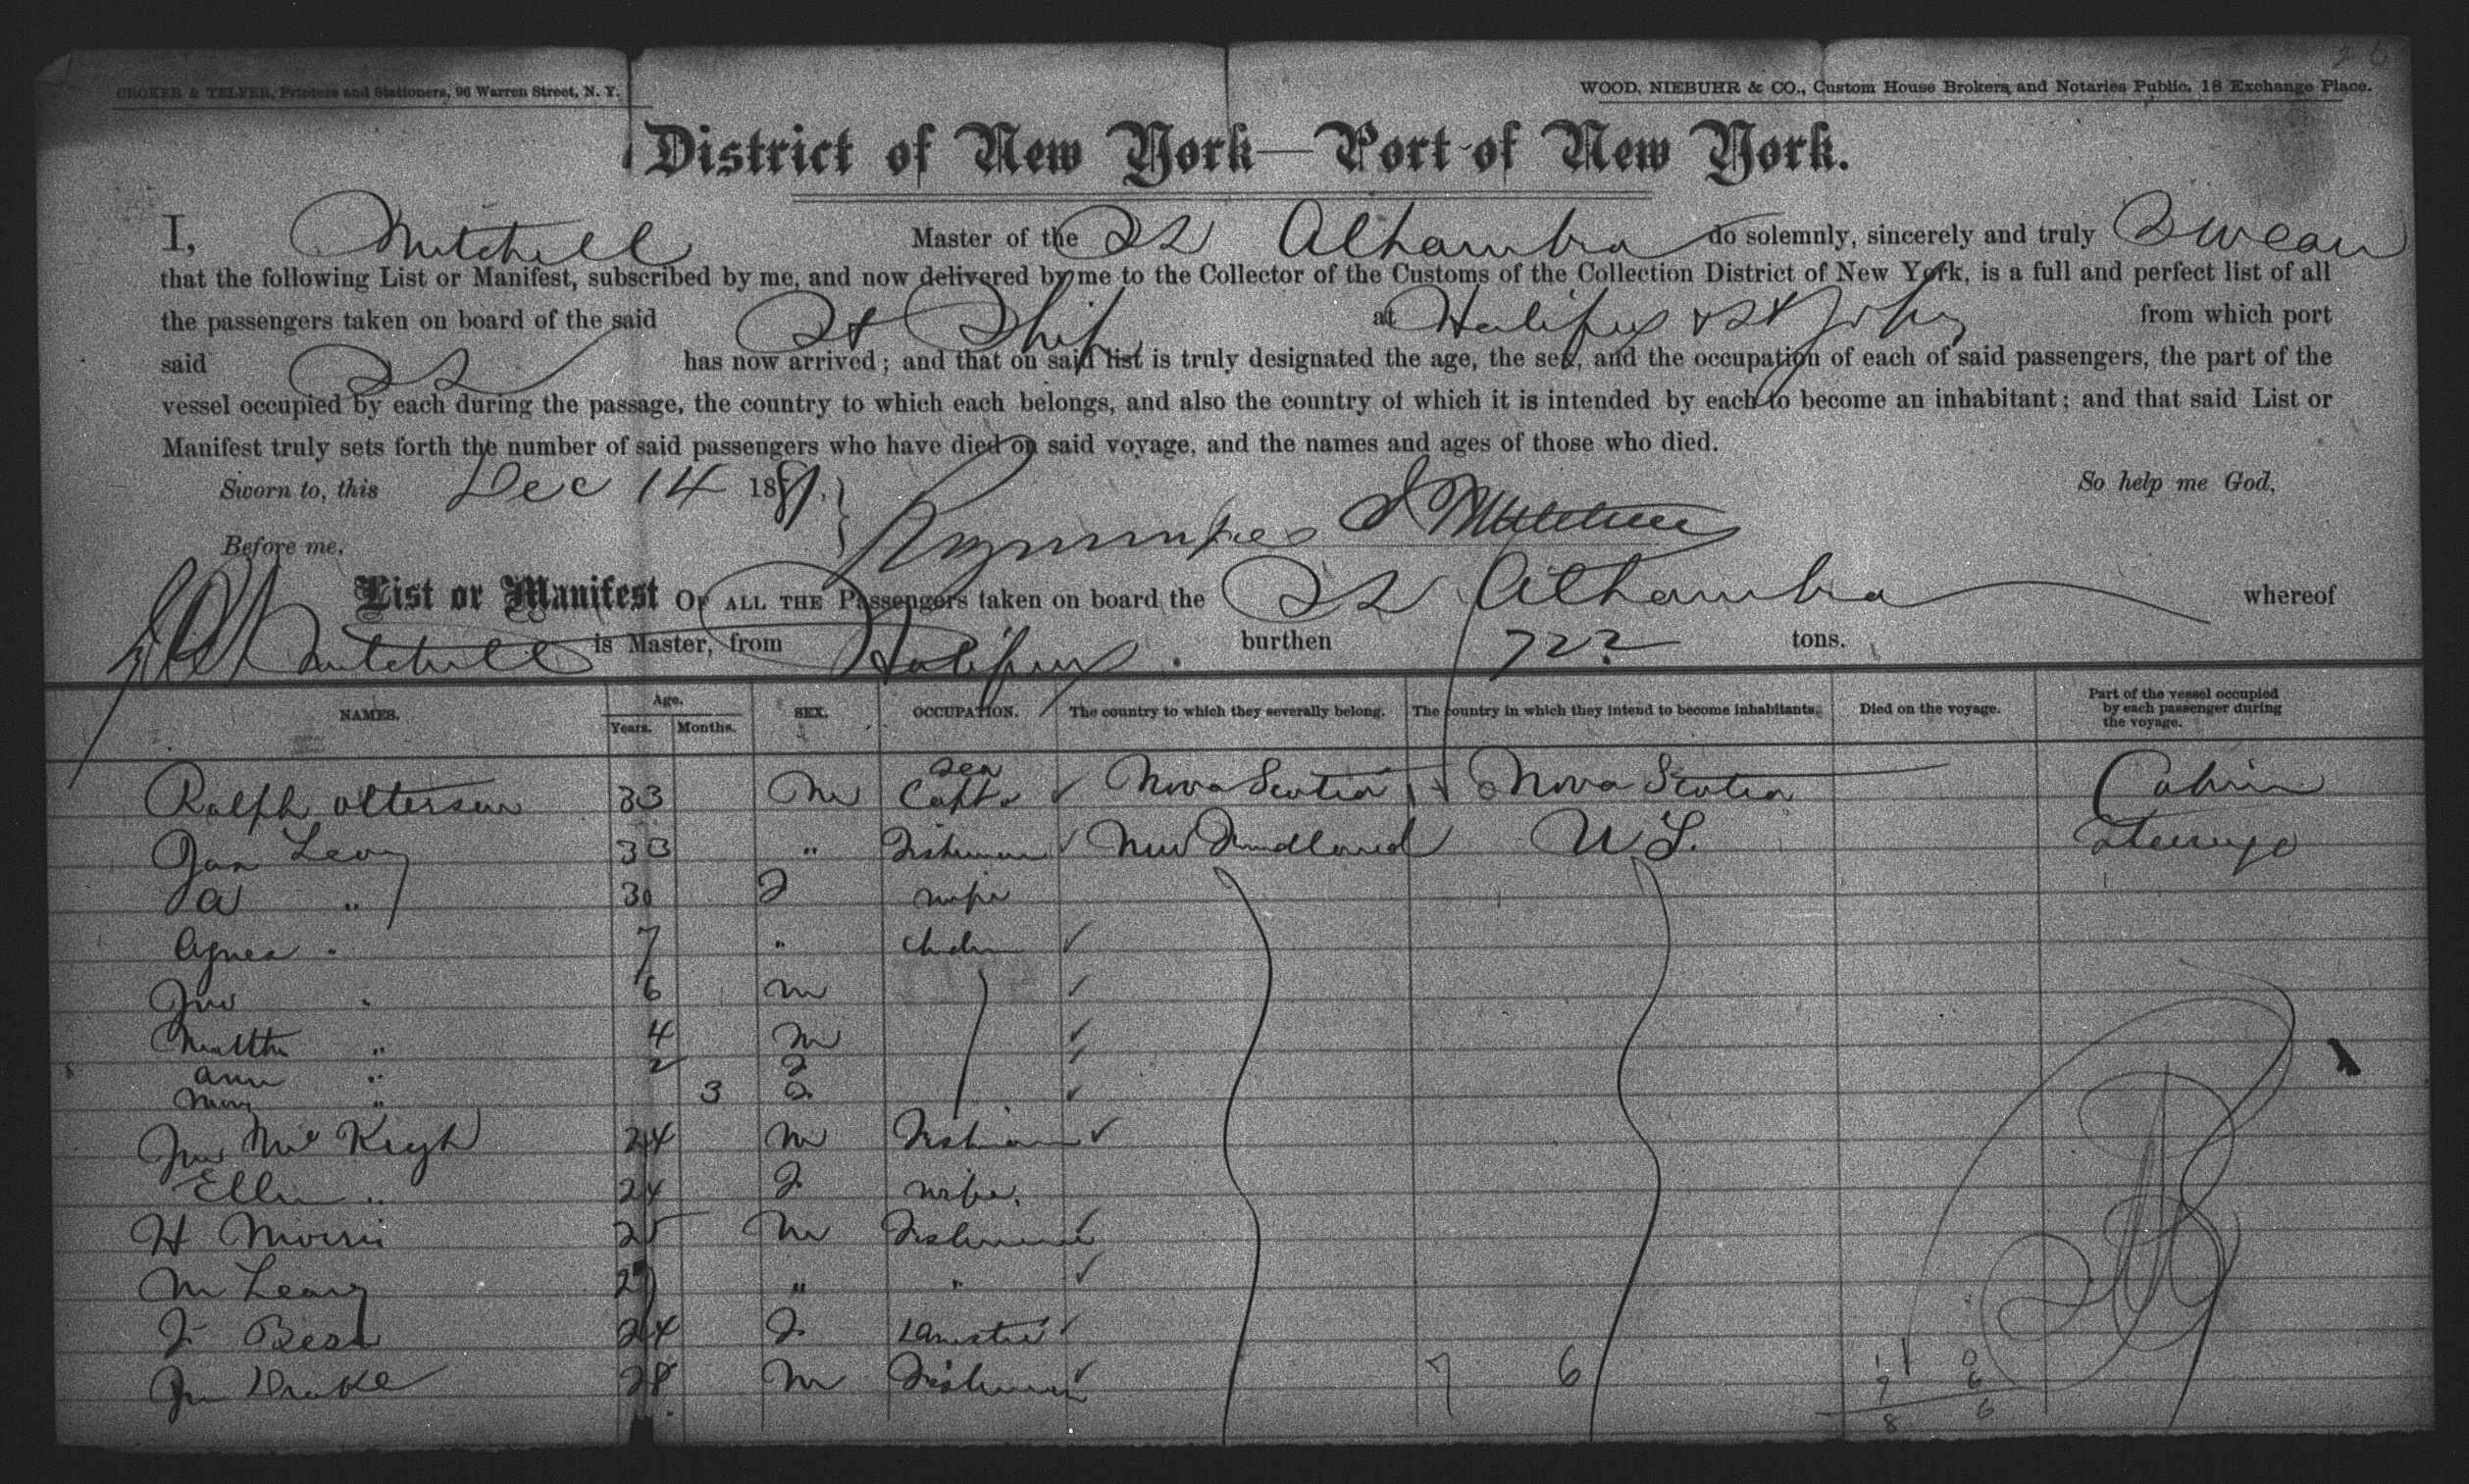 CROKER & TELFER, Printers and Stationers, 96 Warren Street, N. Y.
WOOD, NIEBUHR & CO., Custom House Brokers and Notaries Public, 18 Exchange Place.
District of New York—Port of New York.
I, Mitchell Master of the SS Alhambra do solemnly, sincerely and truly Swear
that the following List or Manifest, subscribed by me, and now delivered by me to the Collector of the Customs of the Collection District of New York, is a full and perfect list of all
the passengers taken on board of the said St Ship at Halifax & St Johns from which port
said SS has now arrived; and that on said list is truly designated the age, the sex, and the occupation of each of said passengers, the part of the
vessel occupied by each during the passage, the country to which each belongs, and also the country of which it is intended by each to become an inhabitant; and that said List or
Manifest truly sets forth the number of said passengers who have died on said voyage, and the names and ages of those who died.
Sworn to, this Dec 14 1881. So help me God,
Before me,
List or Manifest OF ALL THE Passengers taken on board the SS Alhambra whereof
Mitchell is Master, from Halifax. burthen 722 tons.
NAMES. Age. Years. Months. SEX. OCCUPATION. The country to which they severally belong. The country in which they intend to become inhabitants. Died on the voyage. Part of the vessel occupied by each passenger during the voyage.
Ralph 33 M Sea Capt Nova Scotia Nova Scotia Cabin
Jas 33 " Fisherman New Foundland U S. Steerage
a " 30 F wife
Agnes " 7 " childn
Jno " 6 m
Matthw " 4 m
Ann " 2 F
Mary " 3 F
Jno Mc Keigh 24 m Fisherman
Ellen " 24 F wife.
H Morris 25 m Fisherman
M Leary 27 " "
24 F
Jno Drake 28 m Fisherman
7 6